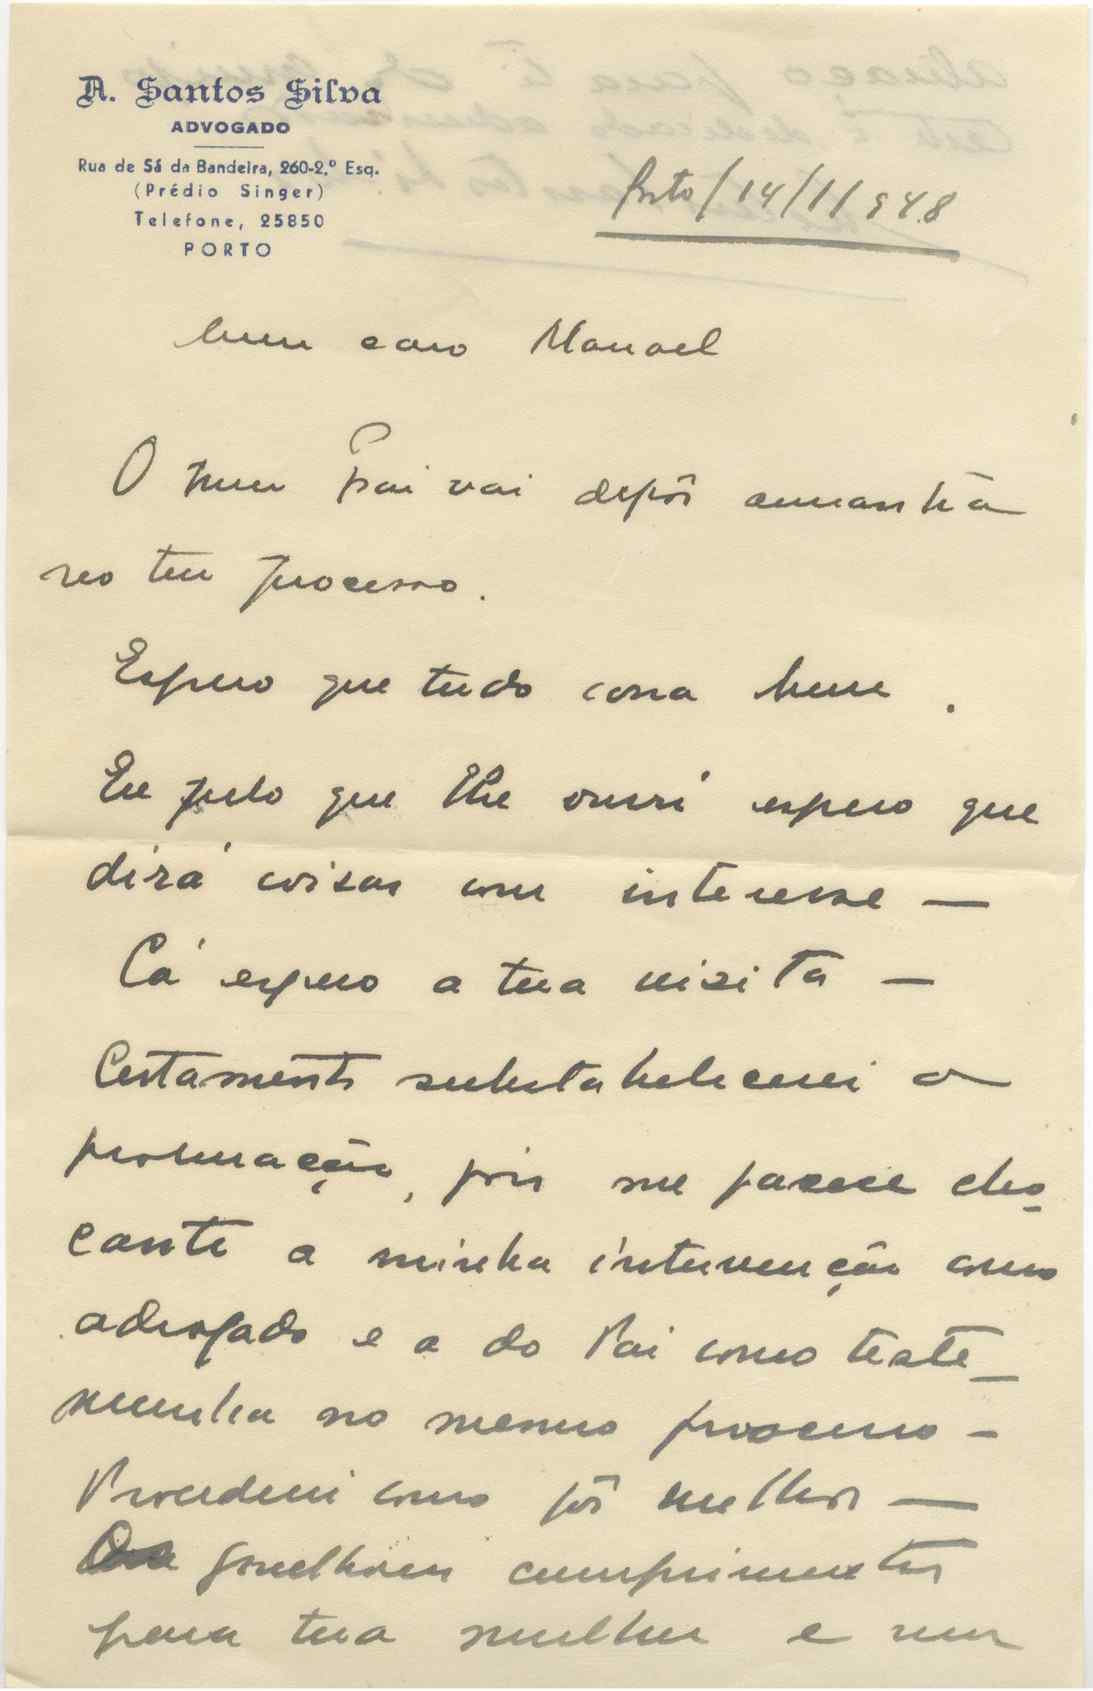 A. Santos Silva
ADVOGADO
Rua de Sá da Bandeira, 260-2.º Esq.
(Prédio Singer)
Telefone, 25850
PORTO
Porto/14/1/948
Meu caro Manoel
O meu Pai vai depôr amanhã
no teu processo.
Espero que tudo corra bem.
Eu pelo que lhe ouvi espero que
dirá coisas com interesse —
Cá espero a tua visita —
Certamente substabelecerei a
procuração, pois me parece cho-
cante a minha intervenção como
advogado e a do Pai como teste-
munha no mesmo processo -
Procederei como fôr melhor —
melhores cumprimentos
para tua mulher e um